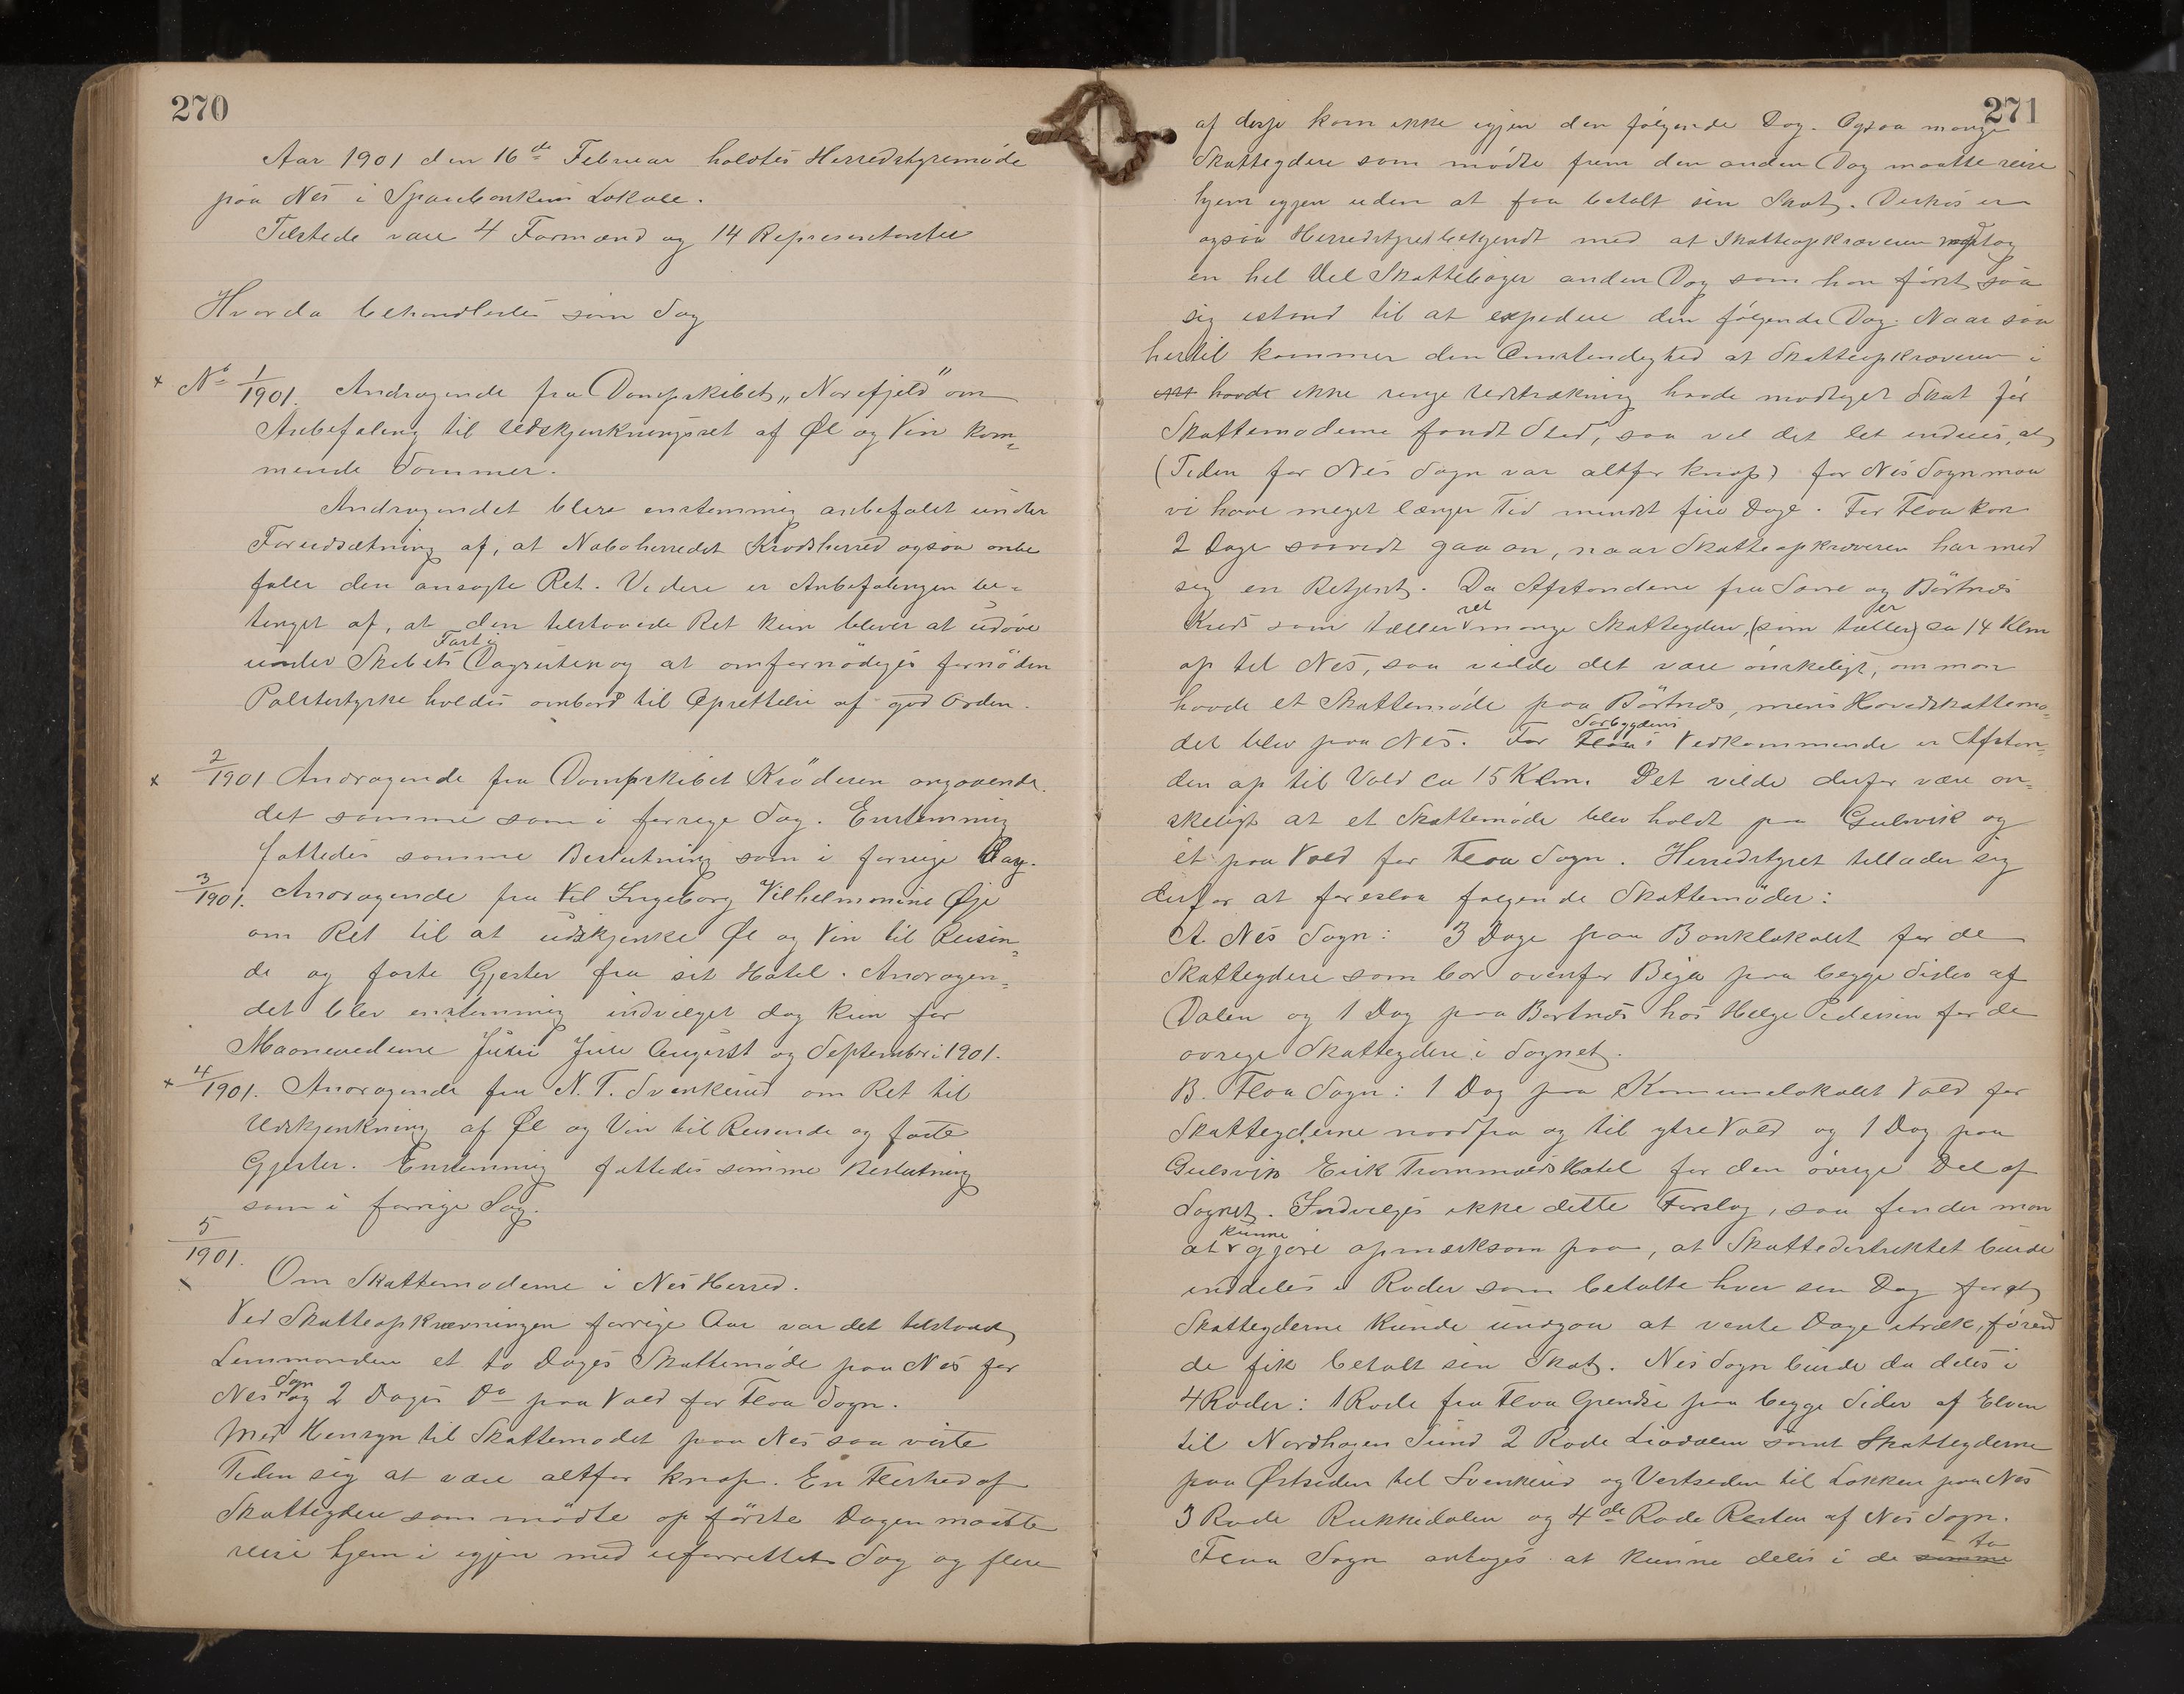 270
Aar 1901 den 16de Februar holdtes Herredstyremøde
paa Nes i Sparebankens Lokale.
Tilstede vare 4 Formænd og 14 Representanter
Hvorda behandledes som Sag
No 1/1901. Andragende fra Dampskibet "Norefjeld" om
Anbefaling til Udskjenkningsret af Øl og Vin kom-
mende Sommer.
Andragendet bleve enstemmig anbefalet under
Forudsætning af, at Naboherredet Krødsherred ogsaa anbe
faler den ansøgte Ret. Videre er Anbefalingen be-
tinget af, at den tilstaaede Ret kun bliver at udøve
under Skibets Fart i Dagruten og at om fornødiges fornøden
Politistyrke holdes ombord til Oprettelse af god Orden.
2/1901 Andragende fra Dampskibet Krøderen angaaende
det samme som i forrige Sag. Enstemmig
fattedes samme Beslutning som i forrige Sag.
3/1901. Andragende fra Ingeborg Vilhelmmine Øje
om Ret til at udskjenke Øl og Vin til Reisen-
de og faste Gjester fra sit Hotel. Andragen-
det blev enstemmig indvilget dog kun for
Maanederne Juni Juli August og September i 1901.
4/1901. Andragende fra N. T. Svenkerud om Ret til
Udskjenkning af Øl og Vin til Reisende og faste
Gjester. Enstemmig fattedes samme Beslutning
som i forrige Sag.
5/1901.
Om Skattemøderne i Nes Herred.
Ved Skatteopkrævningen forrige Aar var det tilstaaet
Lensmanden et to Dages Skattemøde paa Nes for
Nes Sogn og 2 Dages Do paa Vold for Flaa Sogn.
Med Hensyn til Skattemødet paa Nes saa viste
Tiden sig at være altfor knap. En Flerhed af
Skatteydere som mødte op første Dagen maatte
reise hjem i igjen med uforrettet Sag og flere
271
af disse kom ikke igjen den følgende Dag. Ogsaa mange
Skatteydere som mødte frem den anden Dag maatte reise
hjem igjen uden at faa betalt sin Skat. Derhos er
ogsaa Herredstyret bekjendt med at Skatteopkræveren modtog
en hel Del Skattebøger anden Dag som han først saa
sig istand til at expedere den følgende Dag. Naar saa
hertil kommer den Omstendighed at Skatteopkræveren i
havde ikke ringe Udstrækning havde modtaget Skat før
Skattemøderne fandt Sted, saa vil det let indsees, at
(Tiden for Nes Sogn var altfor knap) for Nes Sogn maa
vi have meget længer Tid mindst fire Dage. For Flaa kan
2 Dage saavidt gaa an, naar Skatteopkræveren har med
sig en Betjent. Da Afstandene fra Sarre og Børtnes
Kreds som tæller vel mange Skatteydere, (som tæller) er ca 14 Klm
op til Nes, saa vilde det være ønskeligt, om man
havde et Skattemøde paa Børtnes, mens Hovedskattemø-
det blev paa Nes. For Flaas Sørbygdens Vedkommende er Afstan-
den op til Vold ca 15 Klm. Det vilde derfor være øn-
skeligt at et Skattemøde blev holdt paa Gulsvik og
et paa Vold for Flaa Sogn. Herredstyret tillader sig
derfor at foreslaa følgende Skattemøder:
A. Nes Sogn: 3 Dage paa Banklokalet for de
Skatteydere som bor ovenfor Beja paa begge Sider af
Dalen og 1 Dag paa Børtnes hos Helge Pedersen for de
øvrige Skatteydere i Sognet.
B. Flaa Sogn: 1 Dag paa Komunelokalet Vold for
Skatteyderne nordfra og til ytre Vold og 1 Dag paa
Gulsvik Erik Trommalds Hotel for den øvrige Del af
Sognet. Indvilges ikke dette Forslag, saa finder man
at kunne gjøre opmærksom paa, at Skattedistriktet burde
inddeles i Roder som betalte hver sin Dag for at
Skatteyderne kunde undgaa at vente Dage itræk, førend
de fik betalt sin Skat. Nes Sogn burde da deles i
4 Roder: 1 Rode fra Flaa Grendse paa begge Sider af Elven
til Nordhagen Sund 2 Rode Liodalen samt Skatteyderne
paa Østsiden til Svenkerud og Vestsiden til Lokken paa Nes
3 Rode Rukkedalen og 4de Rode Resten af Nes Sogn.
Flaa Sogn antages at kunne deles i de samme to